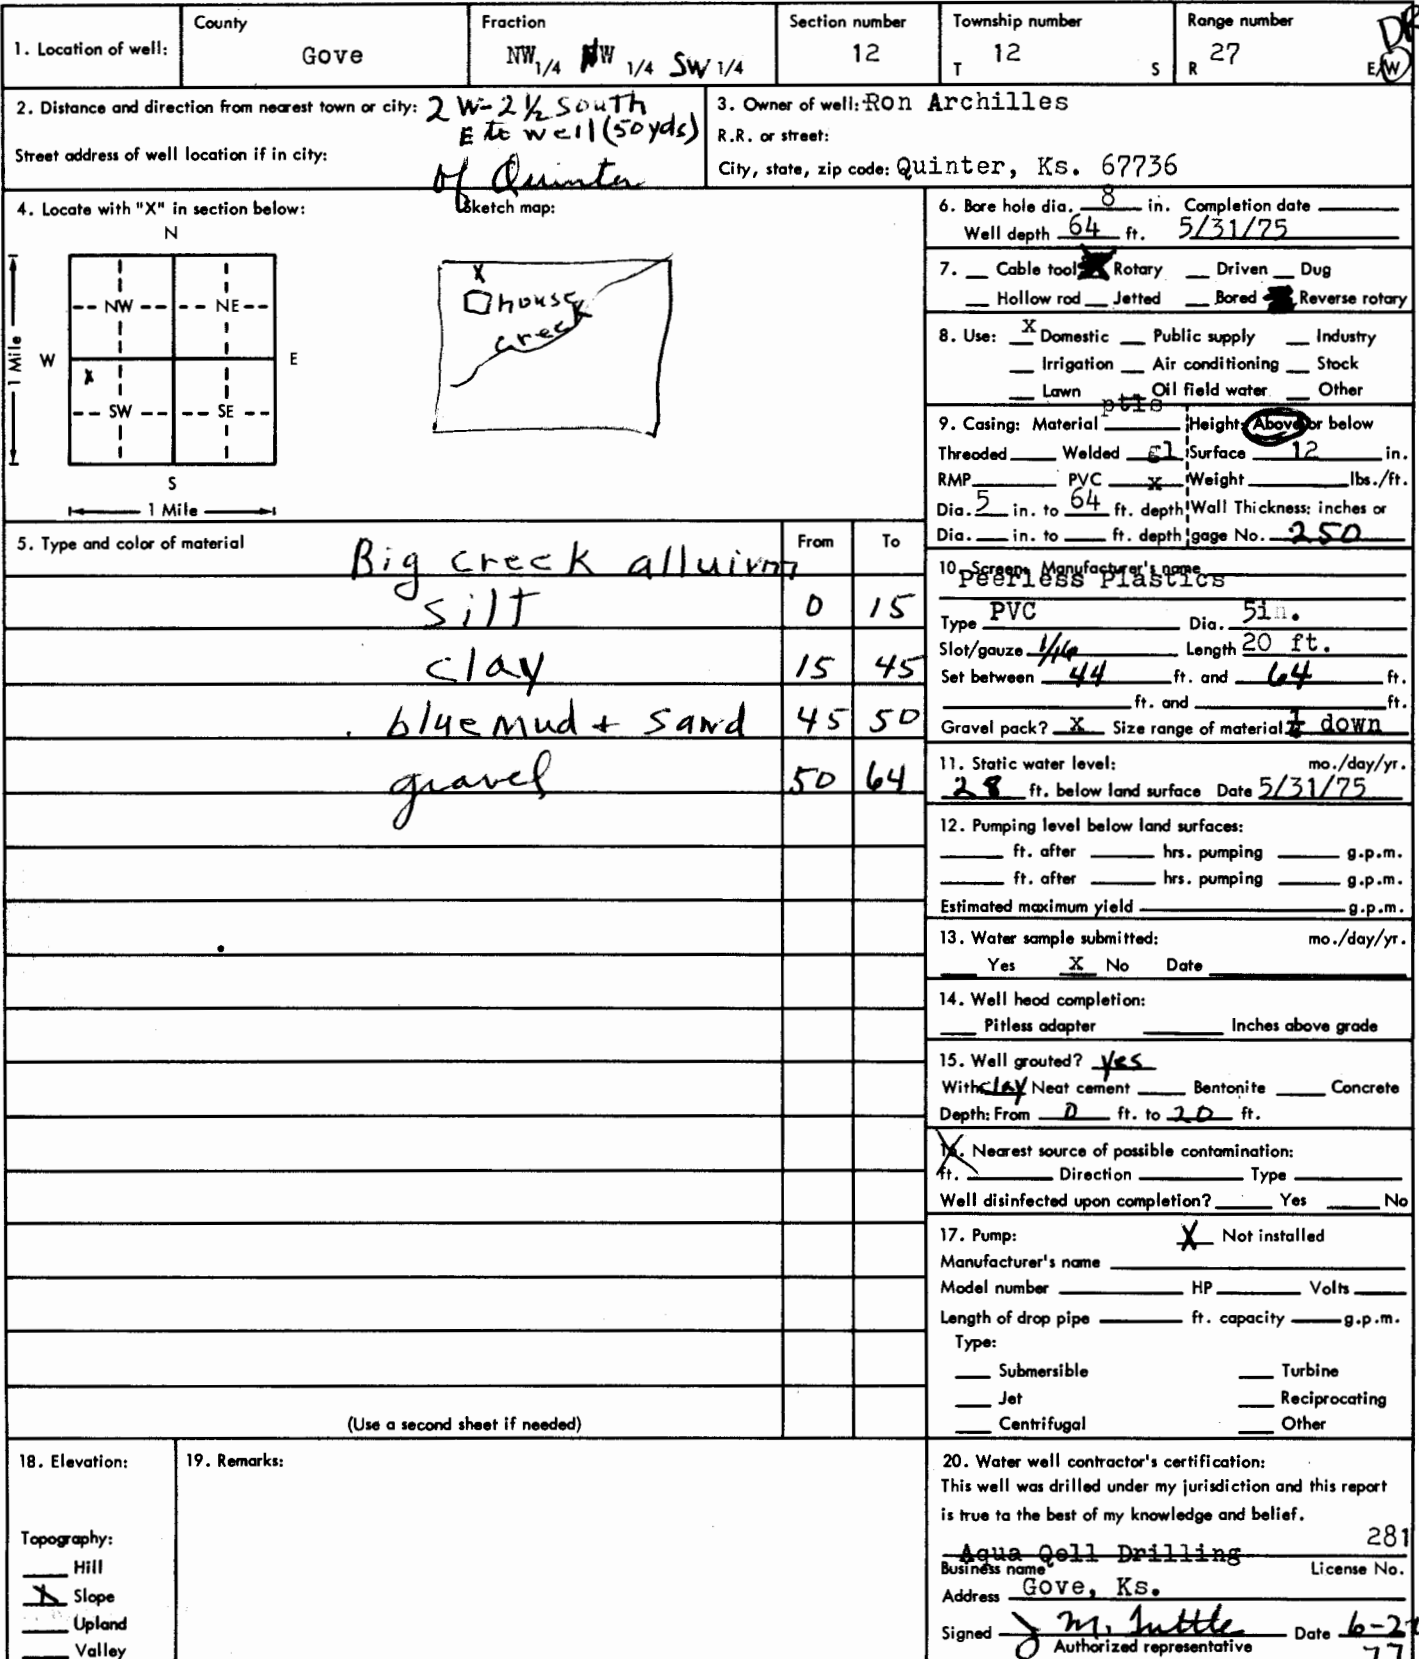 1. Location of well: County Gove Fraction NW 1/4 NW 1/4 SW 1/4 Section number 12 Township number T 12 S Range number R 27 E/W
2. Distance and direction from nearest town or city: 2 W-2½ South
E to well (50yds)
Street address of well location if in city:
of Quinter
3. Owner of well: Ron Archilles
R.R. or street:
City, state, zip code: Quinter, Ks. 67736
4. Locate with "X" in section below:
N
NW NE
W E
X
SW SE
S
1 Mile
1 Mile
Sketch map:
X
house
creek
5. Type and color of material From To
Big creek alluivm
silt 0 15
clay 15 45
blue mud + sand 45 50
gravel 50 64
(Use a second sheet if needed)
6. Bore hole dia. 8 in. Completion date
Well depth 64 ft. 5/31/75
7. Cable tool Rotary Driven Dug
Hollow rod Jetted Bored Reverse rotary
8. Use: X Domestic Public supply Industry
Irrigation Air conditioning Stock
Lawn Oil field water Other
9. Casing: Material Height: Above or below
Threaded Welded Surface 12 in.
RMP PVC x Weight lbs./ft.
Dia. 5 in. to 64 ft. depth Wall Thickness: inches or
Dia. in. to ft. depth gage No. .250
10. Screen: Manufacturer's name
Peerless Plastics
Type PVC Dia. 5in.
Slot/gauze 1/16 Length 20 ft.
Set between 44 ft. and 64 ft.
ft. and ft.
Gravel pack? X Size range of material down
11. Static water level: mo./day/yr.
28 ft. below land surface Date 5/31/75
12. Pumping level below land surfaces:
ft. after hrs. pumping g.p.m.
ft. after hrs. pumping g.p.m.
Estimated maximum yield g.p.m.
13. Water sample submitted: mo./day/yr.
Yes X No Date
14. Well head completion:
Pitless adapter Inches above grade
15. Well grouted? yes
With: clay Neat cement Bentonite Concrete
Depth: From 0 ft. to 20 ft.
16. Nearest source of possible contamination:
ft. Direction Type
Well disinfected upon completion? Yes No
17. Pump: X Not installed
Manufacturer's name
Model number HP Volts
Length of drop pipe ft. capacity g.p.m.
Type:
Submersible Turbine
Jet Reciprocating
Centrifugal Other
18. Elevation:
Topography:
Hill
X Slope
Upland
Valley
19. Remarks:
20. Water well contractor's certification:
This well was drilled under my jurisdiction and this report
is true to the best of my knowledge and belief.
Aqua Qell Drilling 281
Business name License No.
Address Gove, Ks.
Signed J M. Tuttle Date
Authorized representative